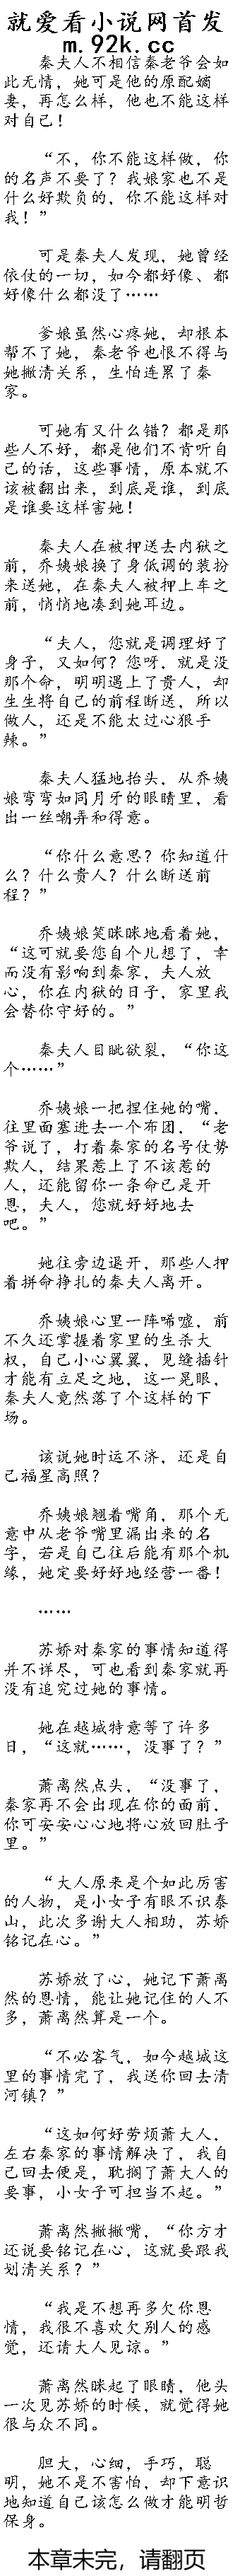 就爱看小说网首发
m.92k.cc
秦夫人不相信秦老爷会如
此无情，她可是他的原配嫡
妻，再怎么样，他也不能这样
对自己！
“不，你不能这样做，你
的名声不要了？我娘家也不是
什么好欺负的，你不能这样对
我！”
可是秦夫人发现，她曾经
依仗的一切，如今都好像、都
好像什么都没了……
爹娘虽然心疼她，却根本
帮不了她，秦老爷也恨不得与
她撇清关系，生怕连累了秦
家。
可她有又什么错？都是那
些人不好，都是他们不肯听自
己的话，这些事情，原本就不
该被翻出来，到底是谁，到底
是谁要这样害她！
秦夫人在被押送去内狱之
前，乔姨娘换了身低调的装扮
来送她，在秦夫人被押上车之
前，悄悄地凑到她耳边。
“夫人，您就是调理好了
身子，又如何？您呀，就是没
那个命，明明遇上了贵人，却
生生将自己的前程断送，所以
做人，还是不能太过心狠手
辣。”
秦夫人猛地抬头，从乔姨
娘弯弯如同月牙的眼睛里，看
出一丝嘲弄和得意。
“你什么意思？你知道什
么？什么贵人？什么断送前
程？”
乔姨娘笑眯眯地看着她，
“这可就要您自个儿想了，幸
而没有影响到秦家，夫人放
心，你在内狱的日子，家里我
会替你守好的。”
秦夫人目眦欲裂，“你这
个……”
乔姨娘一把捏住她的嘴，
往里面塞进去一个布团，“老
爷说了，打着秦家的名号仗势
欺人，结果惹上了不该惹的
人，还能留你一条命已是开
恩，夫人，您就好好地去
吧。”
她往旁边退开，那些人押
着拼命挣扎的秦夫人离开。
乔姨娘心里一阵唏嘘，前
不久还掌握着家里的生杀大
权，自己小心翼翼，见缝插针
才能有立足之地，这一晃眼，
秦夫人竟然落了个这样的下
场。
该说她时运不济，还是自
己福星高照？
乔姨娘翘着嘴角，那个无
意中从老爷嘴里漏出来的名
字，若是自己往后能有那个机
缘，她定要好好地经营一番！
……
苏娇对秦家的事情知道得
并不详尽，可也看到秦家就再
没有追究过她的事情。
她在越城特意等了许多
日，“这就……，没事了？”
萧离然点头，“没事了，
秦家再不会出现在你的面前，
你可安安心心地将心放回肚子
里。”
“大人原来是个如此厉害
的人物，是小女子有眼不识泰
山，此次多谢大人相助，苏娇
铭记在心。”
苏娇放了心，她记下萧离
然的恩情，能让她记住的人不
多，萧离然算是一个。
“不必客气，如今越城这
里的事情完了，我送你回去清
河镇？”
“这如何好劳烦萧大人，
左右秦家的事情解决了，我自
己回去便是，耽搁了萧大人的
要事，小女子可担当不起。”
萧离然撇撇嘴，“你方才
还说要铭记在心，这就要跟我
划清关系？”
“我是不想再多欠你恩
情，我很不喜欢欠别人的感
觉，还请大人见谅。”
萧离然眯起了眼睛，他头
一次见苏娇的时候，就觉得她
很与众不同。
胆大，心细，手巧，聪
明，她不是不害怕，却下意识
地知道自己该怎么做才能明哲
保身。
本章未完，请翻页